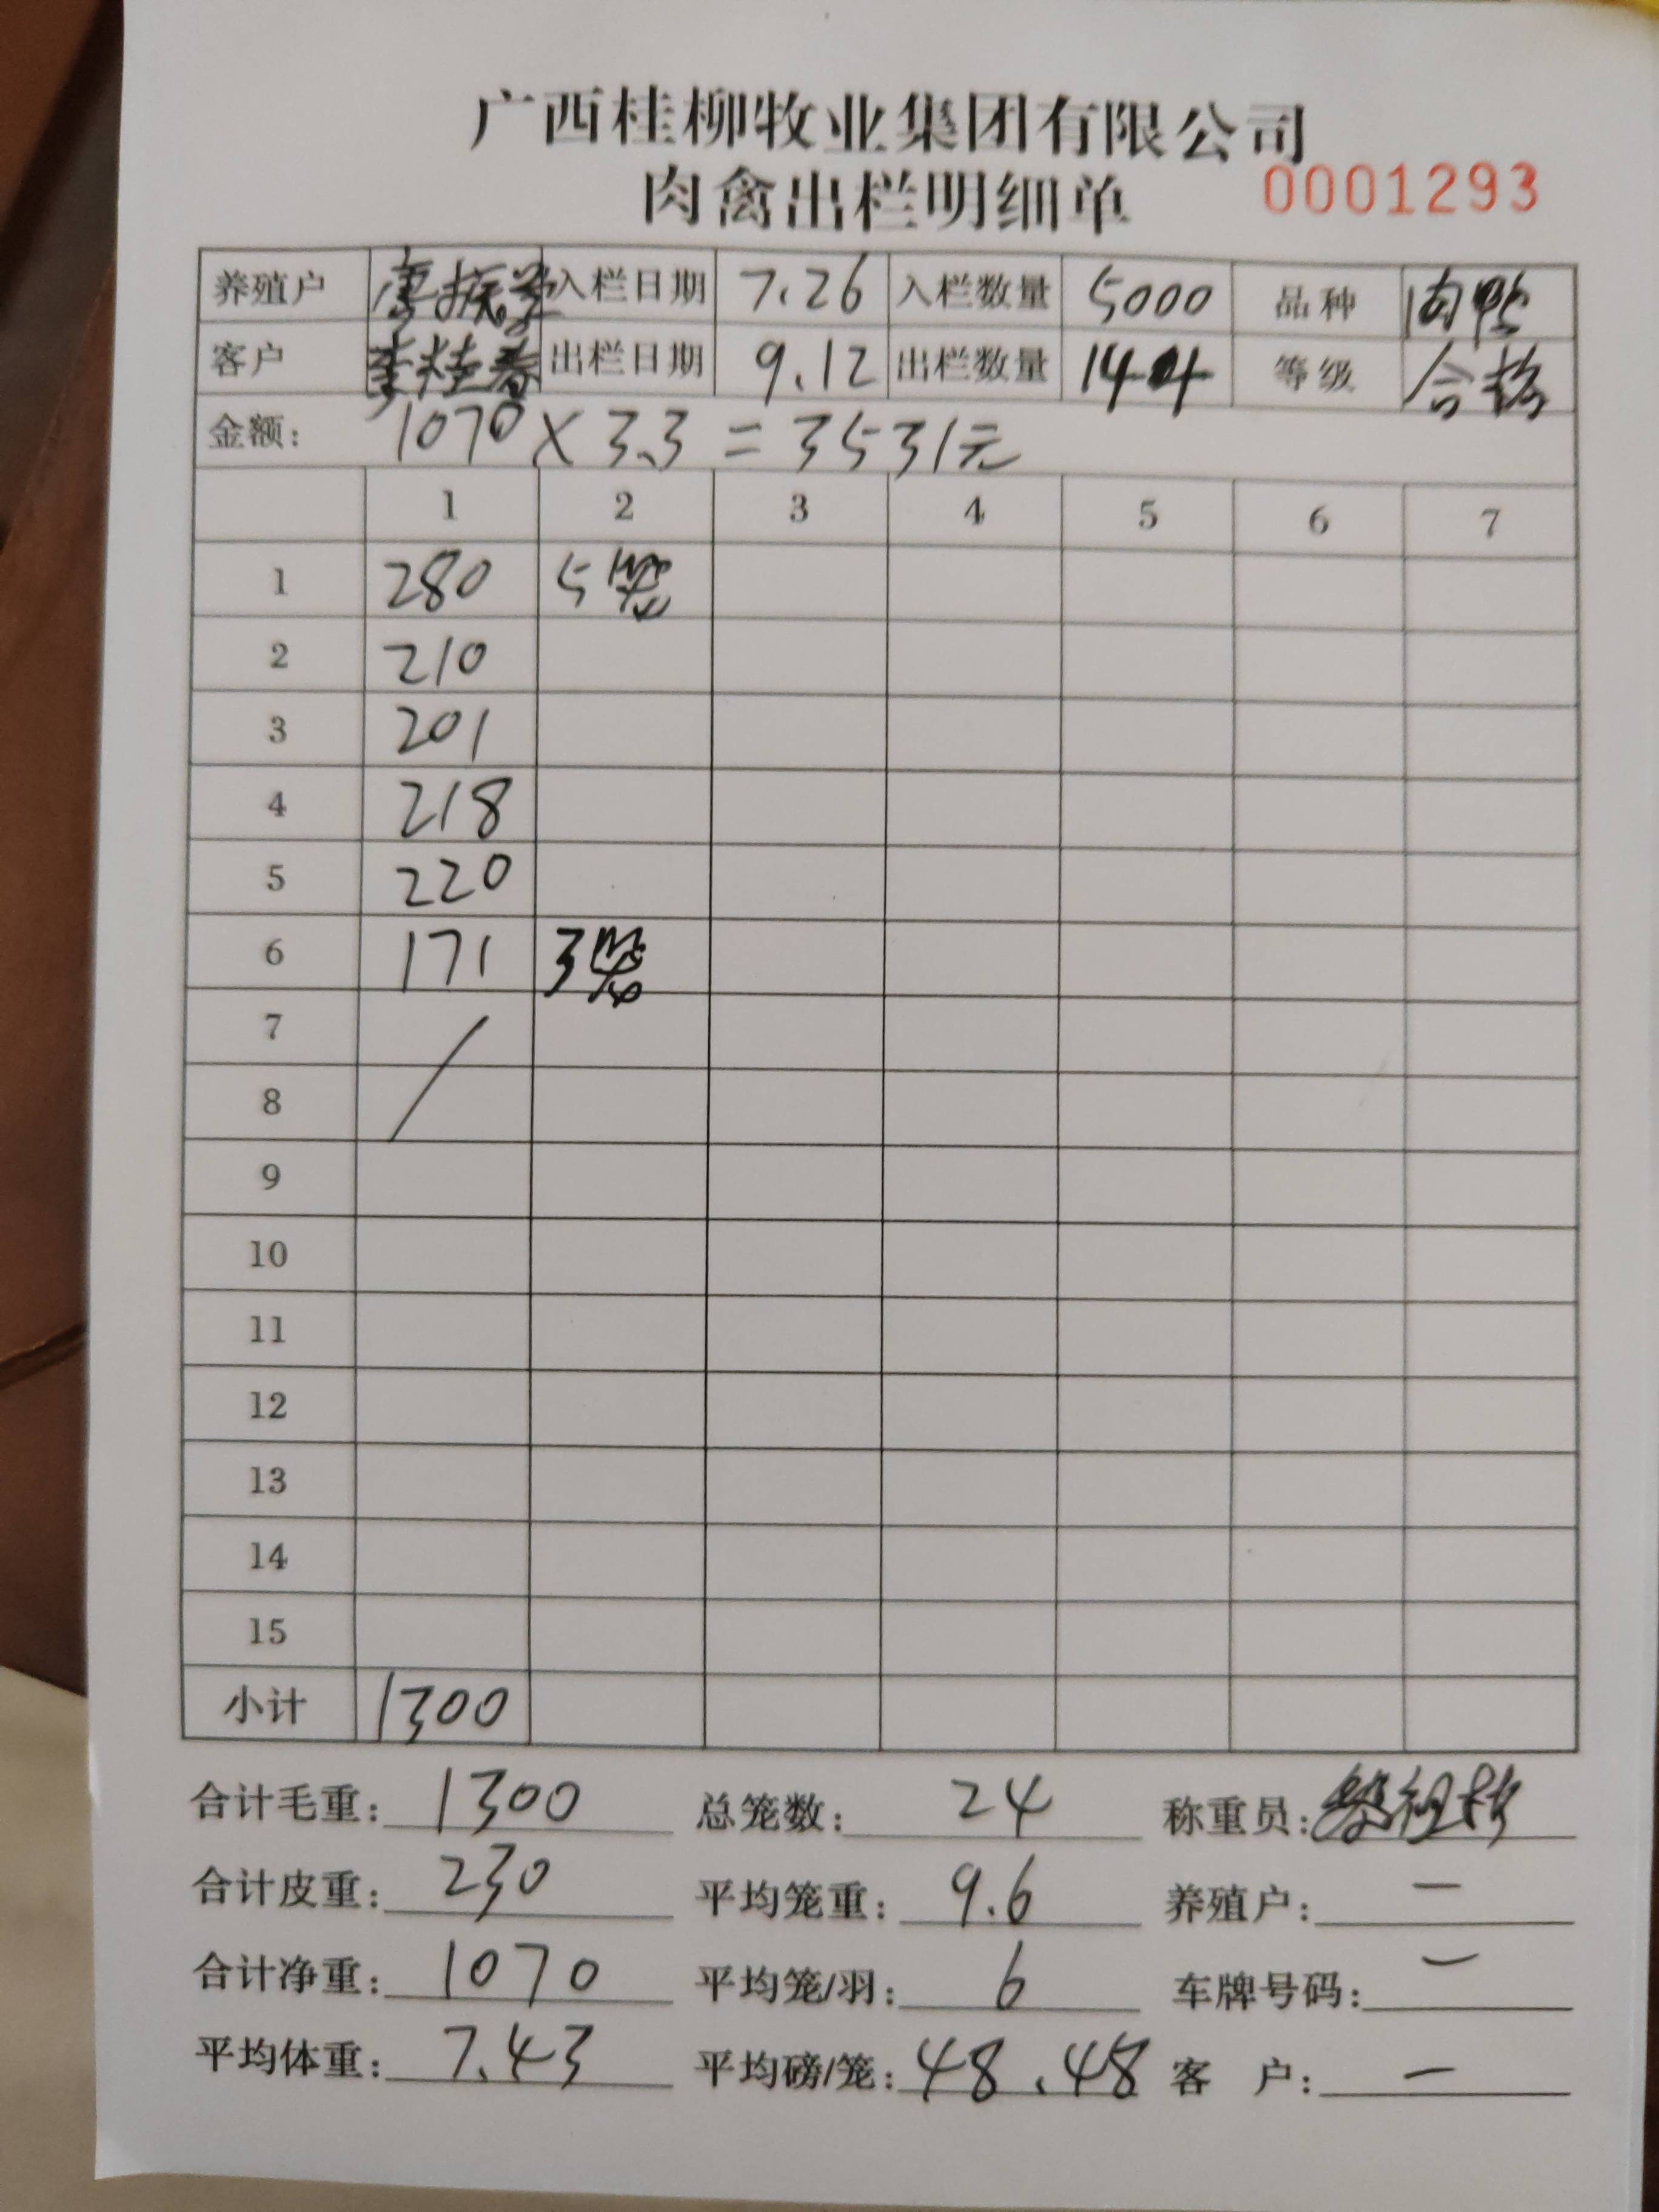 广西桂柳牧业集团有限公司
肉禽出栏明细单 0001293
养殖户 唐振学 入栏日期 7.26 入栏数量 5000 品种 肉鸭
客户 李桂春 出栏日期 9.12 出栏数量 144 等级 合格
金额: 1070 X 3.3 = 3531元
1 2 3 4 5 6 7
1 280 5笼
2 210
3 201
4 218
5 220
6 171 3笼
7
8
9
10
11
12
13
14
15
小计 1300
合计毛重: 1300 总笼数: 24 称重员:
合计皮重: 230 平均笼重: 9.6 养殖户: 一
合计净重: 1070 平均笼/羽: 6 车牌号码: 一
平均体重: 7.43 平均磅/笼: 48.48 客 户: 一